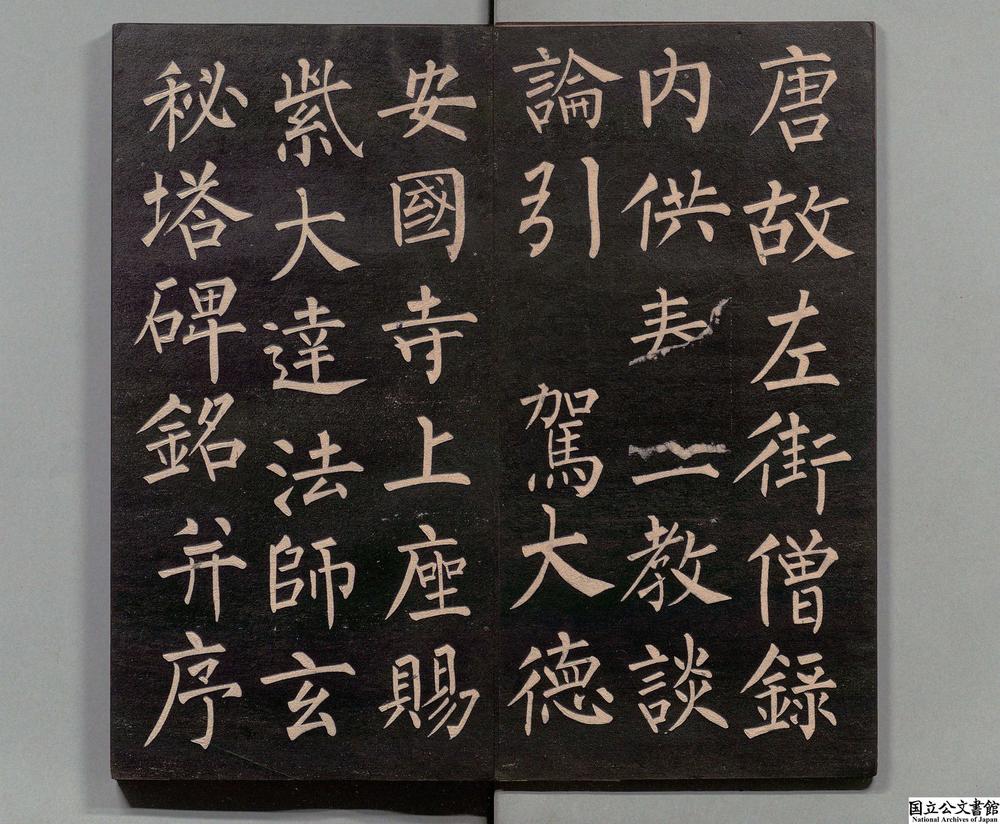 唐故左街僧錄
内供 教談
論引駕大德
安國寺上座賜
紫大達法師玄
秘塔碑銘并序
国立公文書館
National Archives of Japan